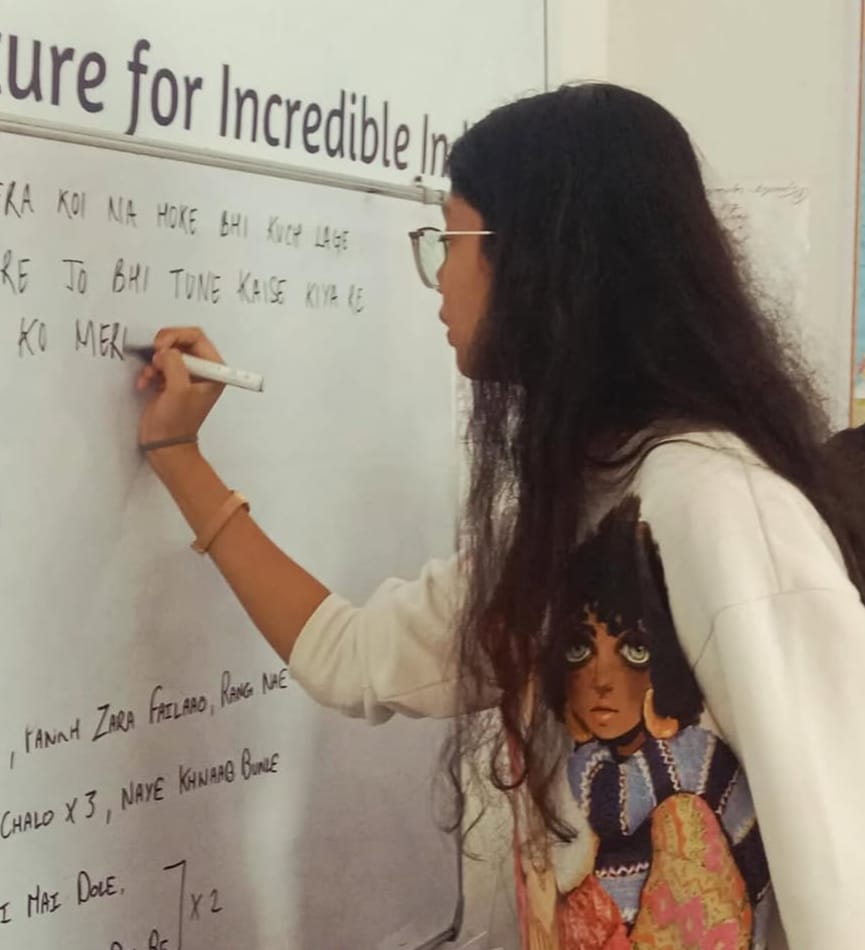 ure for Incredible In
RA KOI NA HOKE BHI KUCH LAGE
RE JO BHI TUNE KAISE KIYA RE
KO MER
, PANKH ZARA FAILAAO, RANG NAE
CHALO X 3, NAYE KHWAAB BUNLE
I HAI DOLE,
] X 2
RE